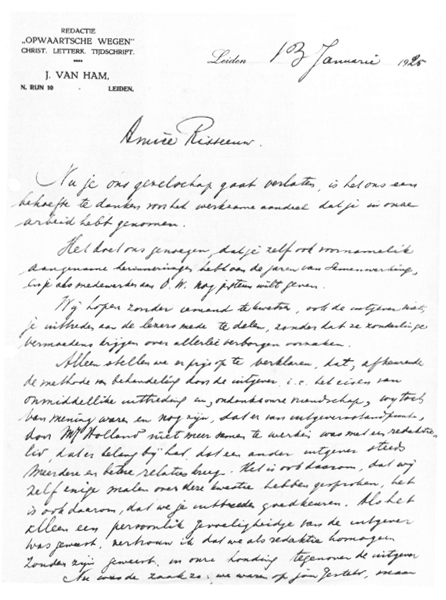 REDACTIE
„OPWAARTSCHE WEGEN"
CHRIST. LETTERK. TIJDSCHRIFT.
J. VAN HAM,
N. RIJN 10 LEIDEN.
Leiden 13 Januarie 1925
Amice Risseeuw.
Nu je ons gezelschap gaat verlaten, is het ons een
behoefte te danken voor het werkzame aandeel dat je in onze
arbeid hebt genomen.
Het doet ons genoegen, dat je zelf ook voornamelik
aangename herinneringen hebt over de jaren van samenwerking,
en je als medewerker den O. W. nog wilt geven.
Wij hopen zonder iemand te kwetsen, ook de uitgever niet,
je uittreden aan de lezers mede te delen, zonder dat ze zonderlinge
vermoedens krijgen over allerlei verborgen oorzaken.
Alleen stellen we er prijs op te verklaren, dat,
de methode van behandeling door de uitgever, i.c. het eisen van
onmiddellike uittreding en, ondankbare, wij toch
van mening waren en nog zijn, dat er van uitgeversstandpunt,
door Mr Holland niet meer samen te werken was met een redaktie-
lid, dat er belang bij had, dat een ander uitgever steeds
meerdere en betere relaties kreeg. Het is ook daarom, dat wij
zelf enige malen over deze kwestie hebben gesproken, het
is ook daarom, dat we je uittreden goedkeuren. Als het
alleen een persoonlik van de uitgever
was geweest, vertrouw ik dat we als redaktie homogeen
zouden zijn geweest in onze houding tegenover de uitgever
Nu was de zaak zo: we waren op jou gesteld, maar